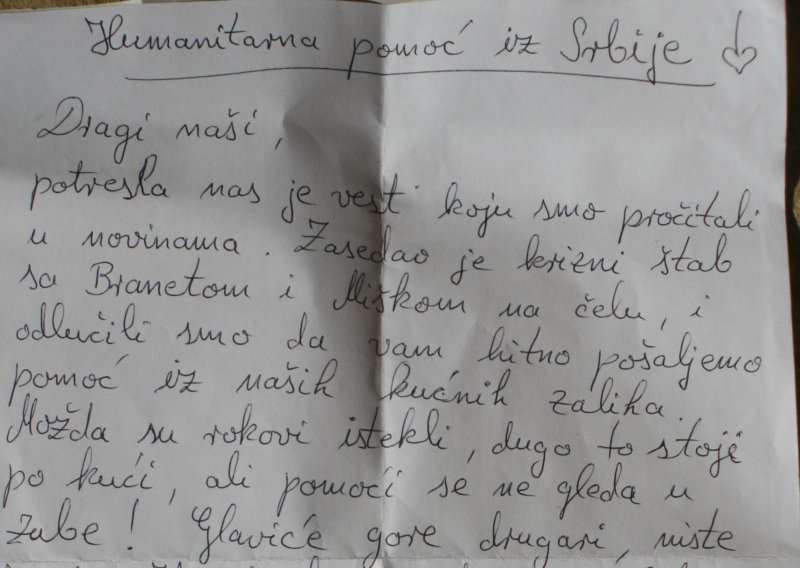 Humanitarna pomoć iz Srbije
Dragi naši,
potresla nas je vest koju smo pročitali
u novinama. Zasedao je krizni štab
sa Branetom i Miškom na čelu, i
odlučili smo da vam hitno pošaljemo
pomoć iz naših kućnih zaliha.
Možda su rokovi istekli, dugo to stoji
po kući, ali pomoći se ne gleda u
zube! Glaviće gore drugari, niste